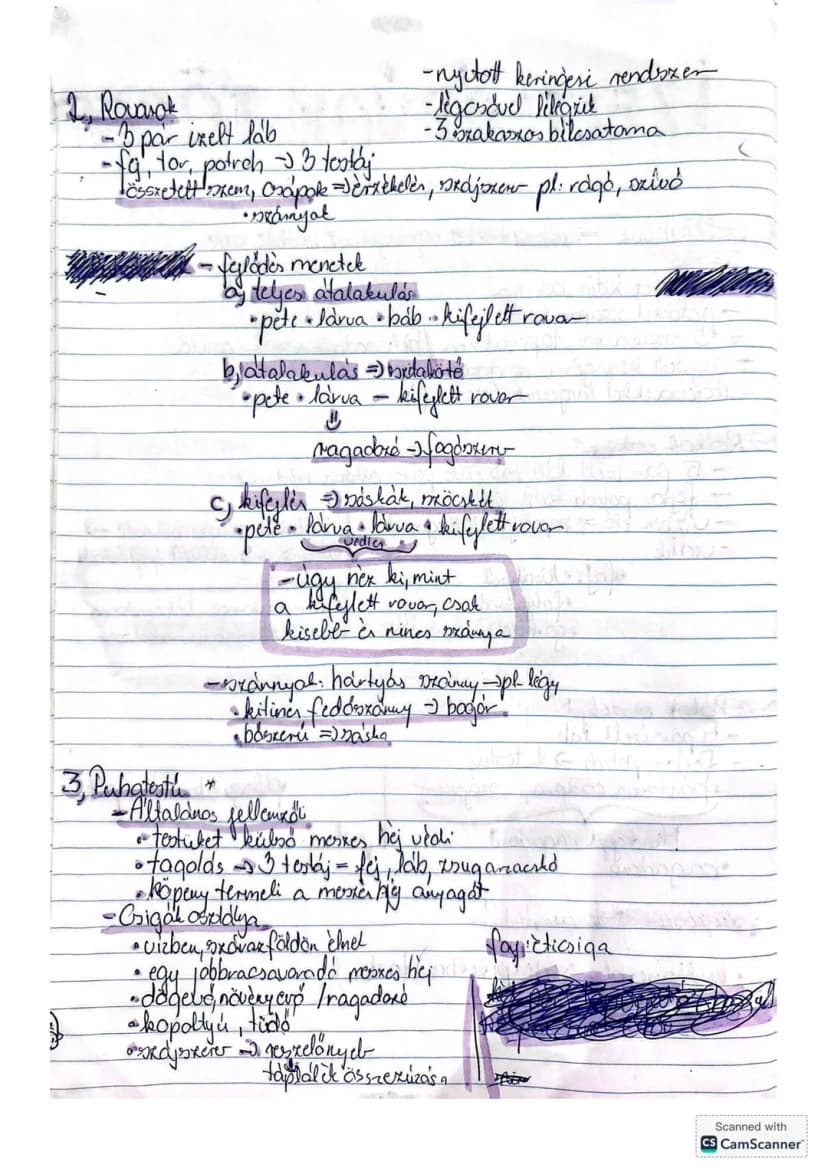 - nyitott keringési rendszer
- légcsővel lélegzik
- 3 szakaszos bélcsatorna
2, Rovarok
- 3 pár ízelt láb
- fej, tor, potroh → 3 testáj
összetett szem, csápok ⇒ érzékelés, szájszerv pl: rágó, szívó
• szárnyak
- fejlődés menetek
a, teljes átalakulás
• pete • lárva • báb • kifejlett rovar
b, átalakulás ⇒ szitakötő
• pete • lárva – kifejlett rovar
ragadozó → fogószerv
c, kifejlés ⇒ sáskák, szöcskék
• pete • lárva • lárva • kifejlett rovar
vedlés
- úgy néz ki, mint
a kifejlett rovar, csak
kisebb és nincs szárnya
- szárnyal: hártyás szárny → pl. légy
• kitines fedőszárny → bogár
• bőszerű ⇒ sáska
3, Puhatestű *
- Általános jellemzői
• testüket külső meszes héj védi
• tagolás → 3 testáj = fej, láb, zsigerzacskó
• köpeny termeli a meszes héj anyagát
- Csigák osztálya
• vízben, szárazföldön élnek
faj: éticsiga
• egy jobbracsavarodó meszes héj
• dögevő, növényevő / ragadozó
• kopoltyú, tüdő
• szájszerv → reszelőnyelv
táplálék összezúzása
Scanned with
CS CamScanner